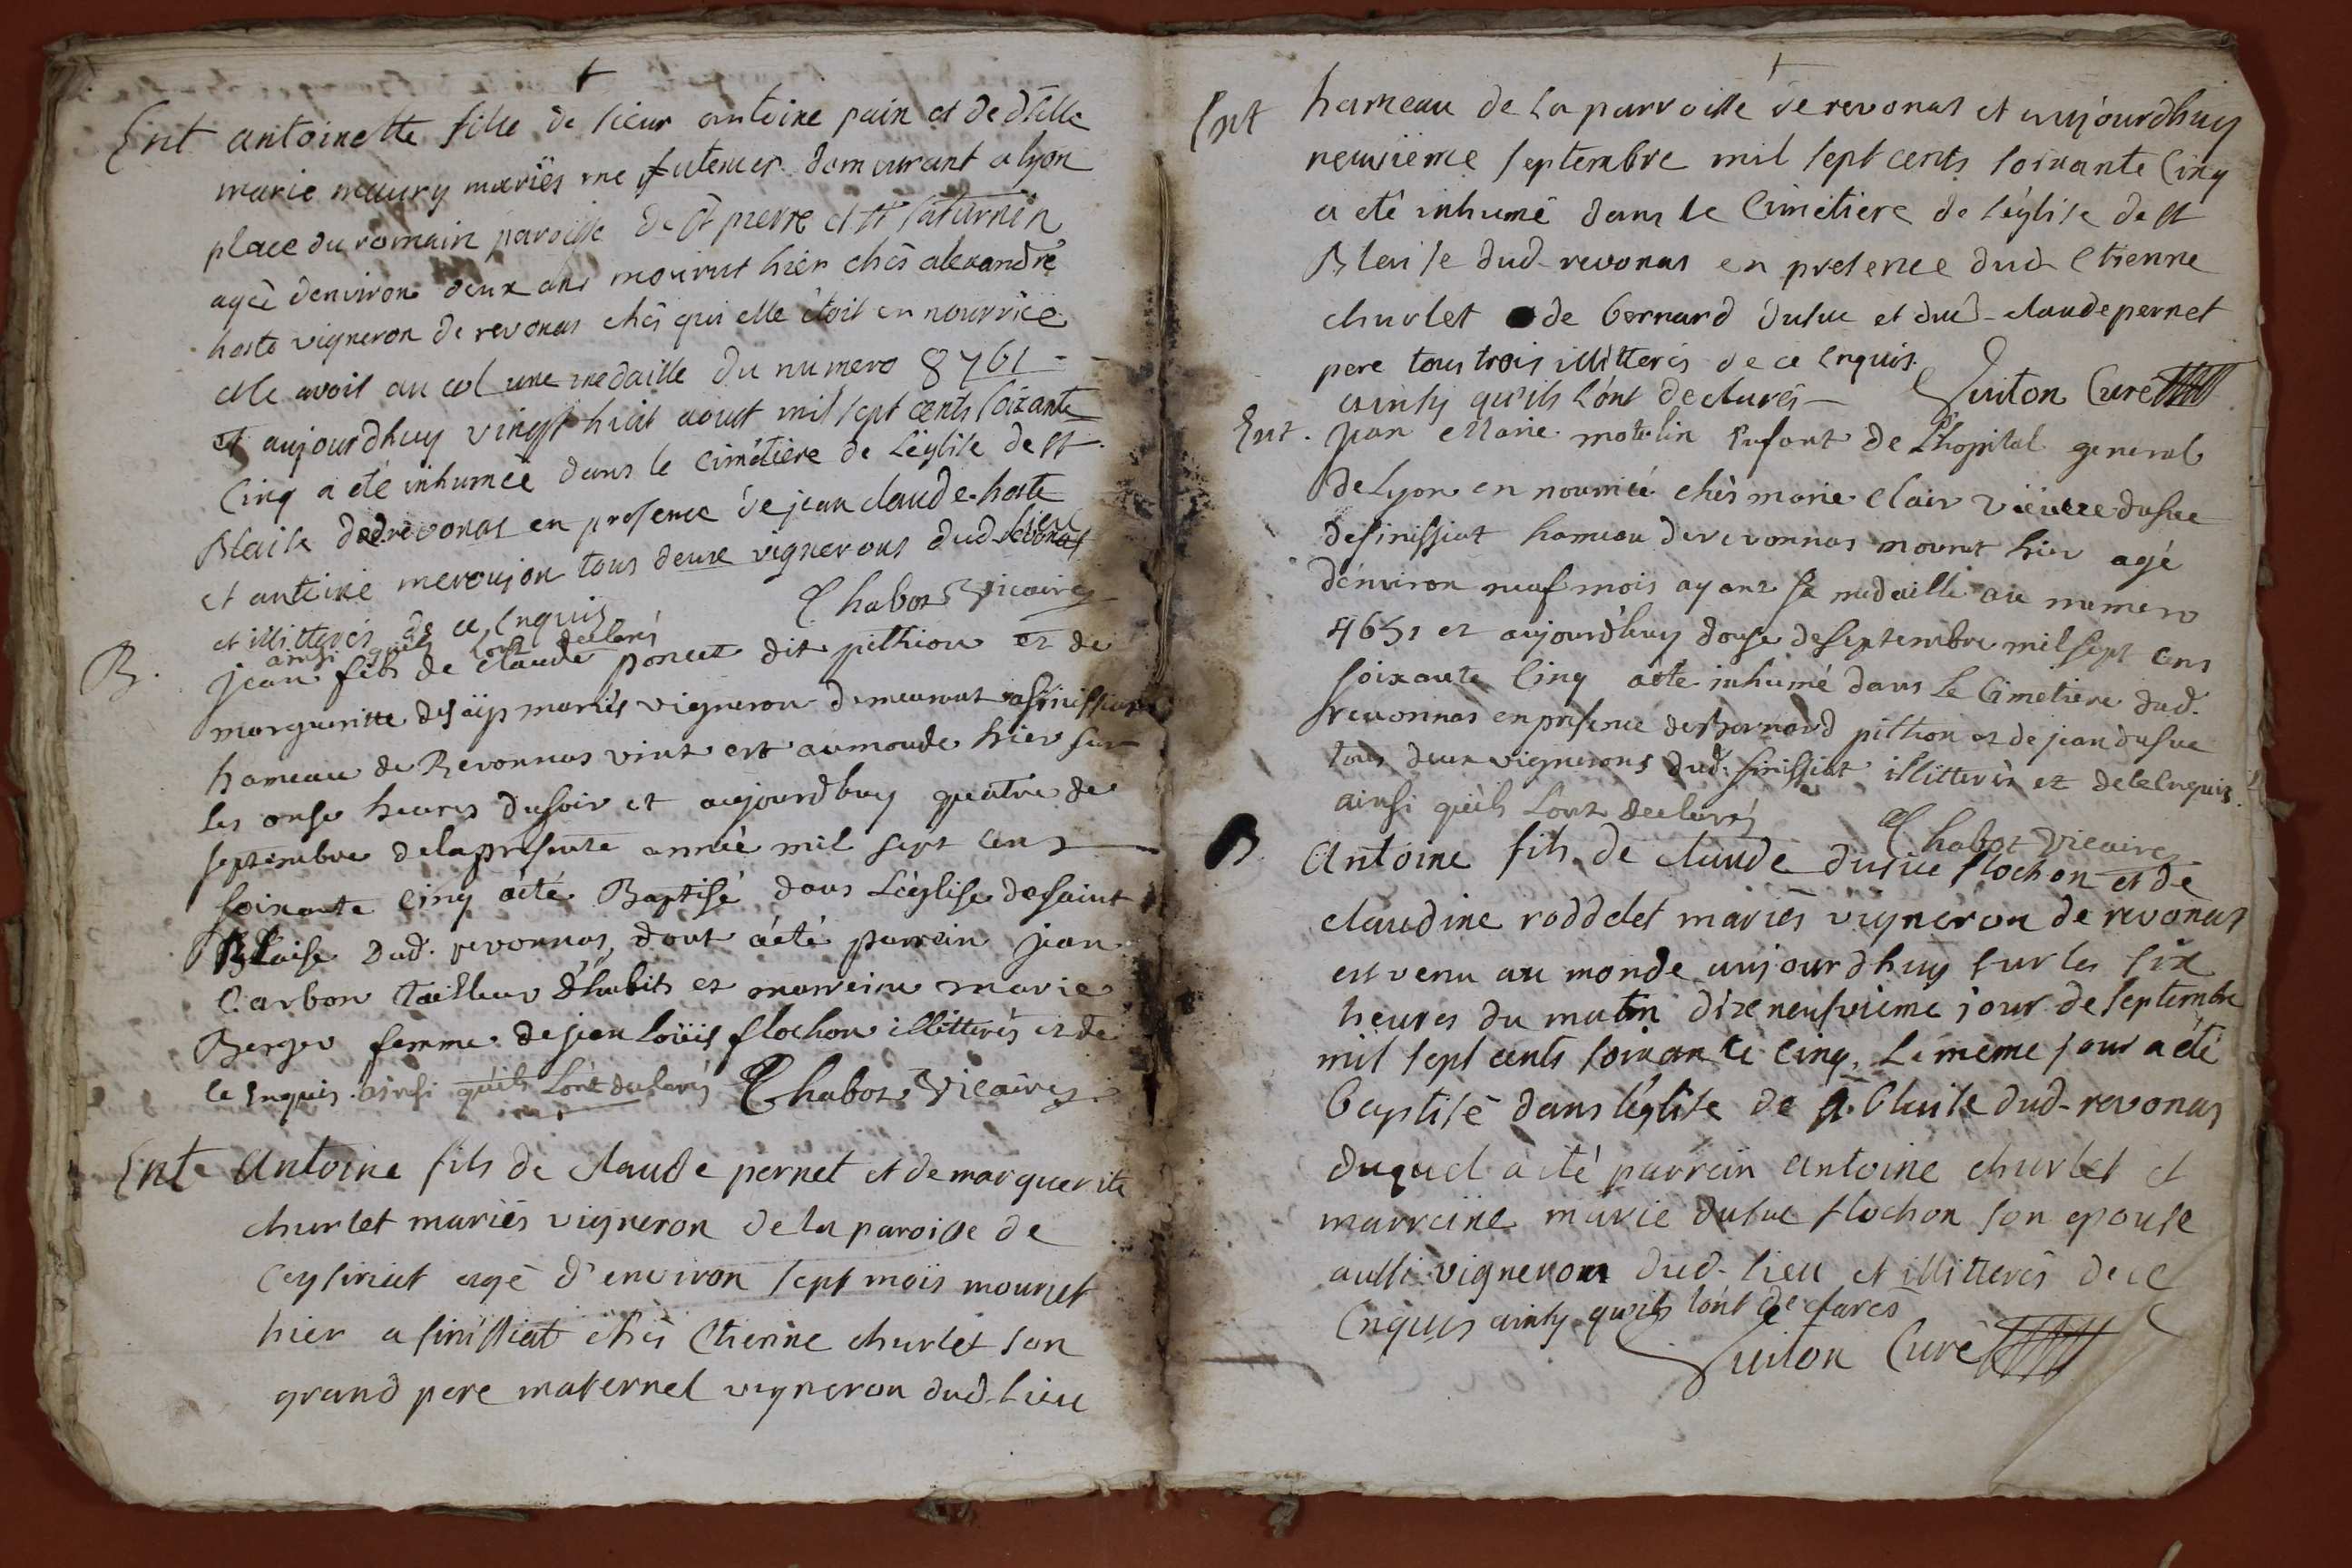 Ent antoinette fille de sieur antoine pain et de dlle
marie maury mariés me futenier demeurant a lyon
place du romain paroisse de st pierre et st saturnin
agée denviron deux ans mourut hier chés alexandre
hoste vigneron de revonas chés qui elle étoit en nourrice
elle avoit au col une medaille du numero 8761 -
et aujourdhuy vingt huit aout mil sept cents soixante
Cinq a été inhumée dans le cimétière de L'église de st
Blaise dud revonas en presence de jean claude hoste
et antoine meroujon tous deux vignerons dud lieu
et illitterés de ce Enquis
ainsi quils Lont declaré Chabot Vicaire
B. jean fils de Claude poncet dit pithion et de
margueritte desaip mariés vigneron demeurant a finissiat
hameau de Revonnas vint est au monde hier sur
les onse heures du soir et aujourdhuy quatre de
septembre de la presente année mil sept cens
soixante Cinq a été Baptisé dans L'église de saint
Blaise dud. revonnas, dont a été parrain jean
Carbon tailleur d'habits et marreine marie
Berger femme de jean Loüis flochon illitterés et de
ce Enquis. ainsi qu'ils Lont declarés Chabot Vicaire
Ent Antoine fils de claude pernet et de marguerite
churlet mariés vigneron de la paroisse de
Ceysiriat agé d'environ sept mois mourut
hier a finissiat chés Etienne churlet son
grand pere maternel vigneron dud. lieu
Ent hameau de la parroisse de revonas et aujourdhuy
neuvieme septembre mil sept cents soixante Cinq
a eté inhumé dans le Cimétiere de l'église de st
Blaise dud. revonas en presence dud Etienne
churlet de bernard dusuc et dud. claude pernet
pere tous trois illitterés de ce Enquis.
ainsy qu'ils l'ont declarés - Guiton Curé
Ent. jean Marie matelin Enfant de L'hopital general
de Lyon en nourrice chés marie Clair vieuve dusuc
de finissiat hameau de revonnas mourut hier agé
d'environ neuf mois ayant sa medaille au numero
4651 et aujourdhuy douse de septembre mil sept cens
soixante Cinq a été inhumé dans Le Cimetiere dud.
revonnas en presence de Bernard pithion et de jean dusuc
tous deux vignerons dud. finissiat illitterés et de ce Enquis
ainsi qu'ils Lont declarés Chabot Vicaire
B Antoine fils de claude dusuc flochon et de
claudine roddet mariés vigneron de revonas
est venu au monde aujourdhuy sur les six
heures du matin dixneufvieme jour de septembre
mil sept cents soixante cinq. Le même jour a été
baptisé dans l'église de st. blaise dud. revonas
duquel a été parrain antoine churlet et
marraine marie dusuc flochon son epouse
aussi vigneron dud. lieu et illitterés de ce
Enquis ainsy qu'ils lont declarés
Guiton Curé